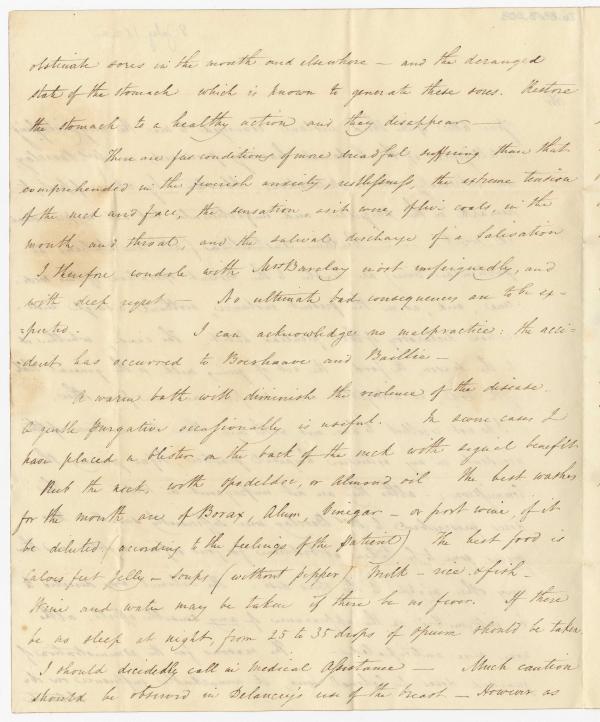 obstinate sores in the mouth and elsewhere – and the deranged
state of the stomach which is known to generate these sores. Restore
the stomach to a healthy action and they disappear –
There are few conditions of more dreadful suffering than that
comprehended in the feverish anxiety, restlessness, the extreme tension
of the neck and face, the sensation as it were, of live coals, in the
mouth and throat, and the salival discharge of a Salivation
I therefore condole with Mrs Barclay most unfeignedly, and
with deep regret – No ultimate bad consequences are to be ex-
-pected. I can acknowledge no malpractice: the acci-
-dent has occurred to Boerhaave and Baillie –
A warm bath will diminish the violence of the disease.
A gentle purgative occasionally is useful. In some cases I
have placed a blister on the back of the neck with signal benefit
Rub the neck, with opodeldoc, or Almond oil The best washes
for the mouth are of Borax, Alum, Vinegar – or port wine, if it
be diluted (according to the feelings of the patient) The best food is
Calves feet Jelly – Soups (without pepper) Milk – rice & fish –
Wine and water may be taken if there be no fever. If there
be no sleep at night, from 25 to 35 drops of opium should be taken
I should decidedly call in Medical Assistance – Much caution
should be observed in Delancey's use of the breast – However as